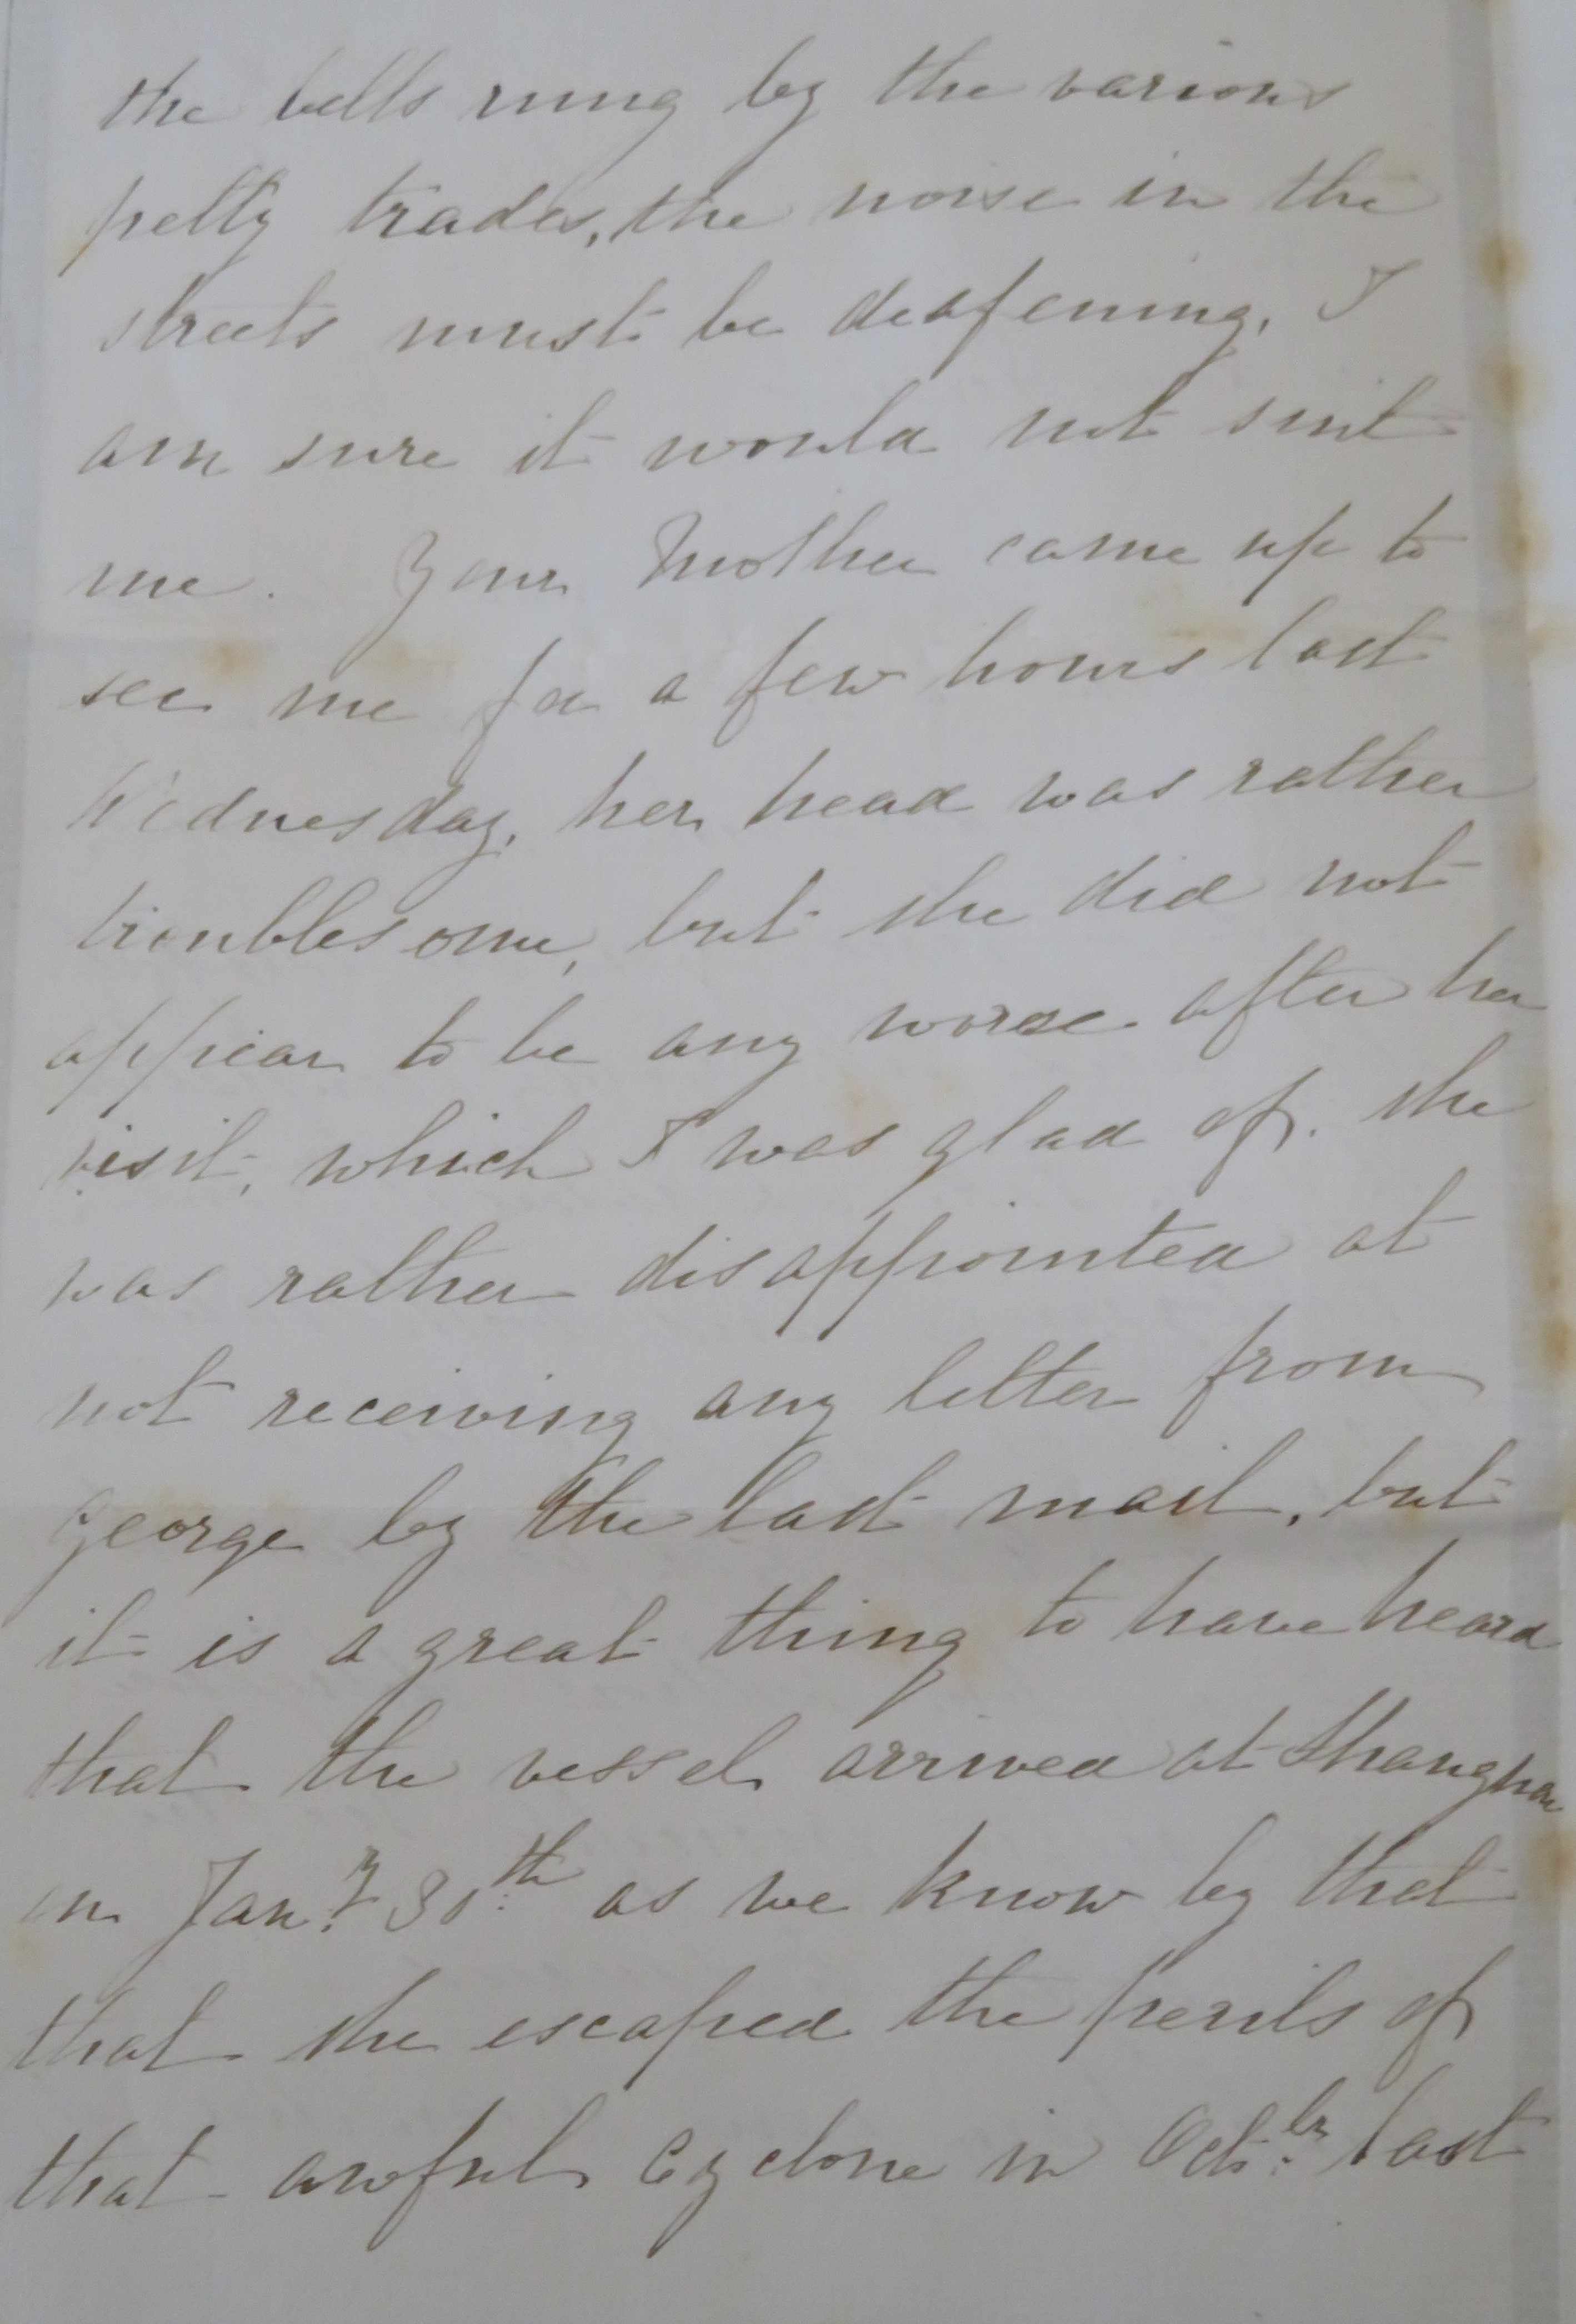 the bells rung by the various
petty trades, the noise in the
streets must be deafening, I
am sure it would not suit
me. Your Mother came up to
see me for a few hours last
Wednesday, her head was rather
troublesome, but she did not
appear to be any worse after her
visit, which I was glad of. she
was rather disappointed at
not receiving any letter from
George by the last mail, but
it is a great thing to have heard
that the vessel arrived at Shanghai
on Jan.y 30th as we know by that
that she escaped the perils of
that awful Cyclone in Octobr last